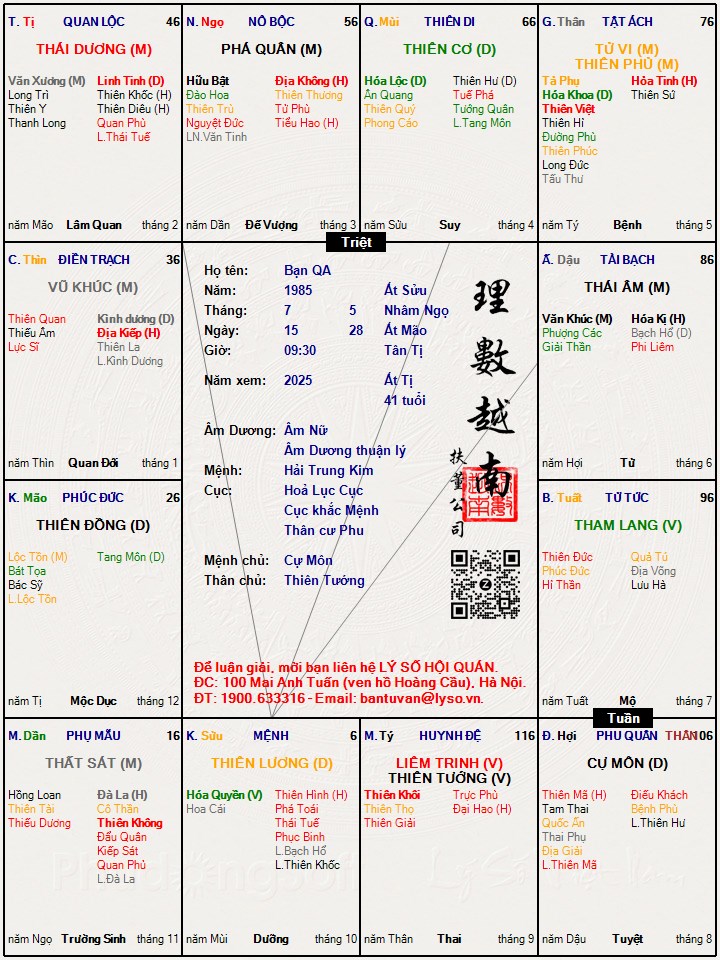 T. Tị QUAN LỘC 46
THÁI DƯƠNG (M)
Văn Xương (M) Linh Tinh (D)
Long Trì Thiên Khốc (H)
Thiên Y Thiên Diêu (H)
Thanh Long Quan Phù
L.Thái Tuế
năm Mão Lâm Quan tháng 2
N. Ngọ NÔ BỘC 56
PHÁ QUÂN (M)
Hữu Bật Địa Không (H)
Đào Hoa Thiên Thương
Thiên Trù Tử Phù
Nguyệt Đức Tiểu Hao (H)
LN.Văn Tinh
năm Dần Đế Vượng tháng 3
Q. Mùi THIÊN DI 66
THIÊN CƠ (D)
Hóa Lộc (D) Thiên Hư (D)
Ân Quang Tuế Phá
Thiên Quý Tướng Quân
Phong Cáo L.Tang Môn
năm Sửu Suy tháng 4
G. Thân TẬT ÁCH 76
TỬ VI (M)
THIÊN PHỦ (M)
Tả Phụ Hỏa Tinh (H)
Hóa Khoa (D) Thiên Sứ
Thiên Việt
Thiên Hỉ
Đường Phù
Thiên Phúc
Long Đức
Tấu Thư
năm Tý Bệnh tháng 5
Triệt
C. Thìn ĐIỀN TRẠCH 36
VŨ KHÚC (M)
Thiên Quan Kình dương (D)
Thiếu Âm Địa Kiếp (H)
Lực Sĩ Thiên La
L.Kình Dương
năm Thìn Quan Đới tháng 1
Họ tên: Bạn QA
Năm: 1985 Ất Sửu
Tháng: 7 5 Nhâm Ngọ
Ngày: 15 28 Ất Mão
Giờ: 09:30 Tân Tị
Năm xem: 2025 Ất Tị
41 tuổi
Âm Dương: Âm Nữ
Âm Dương thuận lý
Mệnh: Hải Trung Kim
Cục: Hoả Lục Cục
Cục khắc Mệnh
Thân cư Phu
Mệnh chủ: Cự Môn
Thân chủ: Thiên Tướng
理數越南
扶董公司
Để luận giải, mời bạn liên hệ LÝ SỐ HỘI QUÁN.
ĐC: 100 Mai Anh Tuấn (ven hồ Hoàng Cầu), Hà Nội.
ĐT: 1900.633316 - Email: bantuvan@lyso.vn.
Ấ. Dậu TÀI BẠCH 86
THÁI ÂM (M)
Văn Khúc (M) Hóa Kị (H)
Phượng Các Bạch Hổ (D)
Giải Thần Phi Liêm
năm Hợi Tử tháng 6
K. Mão PHÚC ĐỨC 26
THIÊN ĐỒNG (D)
Lộc Tồn (M) Tang Môn (D)
Bát Tọa
Bác Sỹ
L.Lộc Tồn
năm Tị Mộc Dục tháng 12
B. Tuất TỬ TỨC 96
THAM LANG (V)
Thiên Đức Quả Tú
Phúc Đức Địa Võng
Hỉ Thần Lưu Hà
năm Tuất Mộ tháng 7
Tuần
M. Dần PHỤ MẪU 16
THẤT SÁT (M)
Hồng Loan Đà La (H)
Thiên Tài Cô Thần
Thiếu Dương Thiên Không
Đẩu Quân
Kiếp Sát
Quan Phủ
L.Đà La
năm Ngọ Trường Sinh tháng 11
K. Sửu MỆNH 6
THIÊN LƯƠNG (D)
Hóa Quyền (V) Thiên Hình (H)
Hoa Cái Phá Toái
Thái Tuế
Phục Binh
L.Bạch Hổ
L.Thiên Khốc
năm Mùi Dưỡng tháng 10
M. Tý HUYNH ĐỆ 116
LIÊM TRINH (V)
THIÊN TƯỚNG (V)
Thiên Khôi Trực Phù
Thiên Thọ Đại Hao (H)
Thiên Giải
năm Thân Thai tháng 9
Đ. Hợi PHU QUÂN THÂN 106
CỰ MÔN (D)
Thiên Mã (H) Điếu Khách
Tam Thai Bệnh Phù
Quốc Ấn L.Thiên Hư
Thai Phụ
Địa Giải
L.Thiên Mã
năm Dậu Tuyệt tháng 8